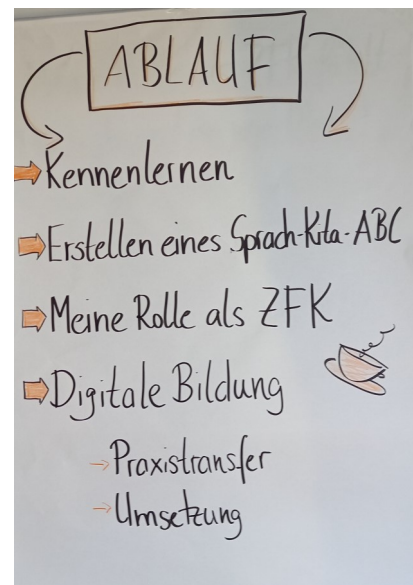 ABLAUF
Kennenlernen
Erstellen eines Sprach-Kita-ABC
Meine Rolle als ZFK
Digitale Bildung
Praxistransfer
Umsetzung